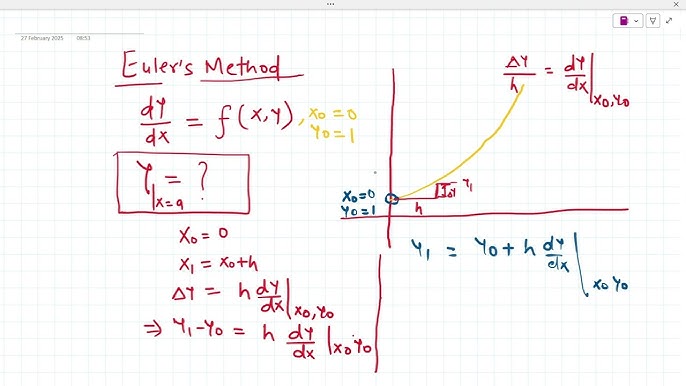 27 February 2025 08:53
Euler's Method
dY/dX = f(X,Y), X0=0
Y0=1
Y|x=a = ?
X0 = 0
X1 = X0+h
ΔY = h dY/dX |X0,Y0
⇒ Y1-Y0 = h dY/dX |X0Y0
ΔY/h = dY/dX |X0,Y0
X0=0
Y0=1
h
Y1
Y1 = Y0 + h dY/dX |X0 Y0